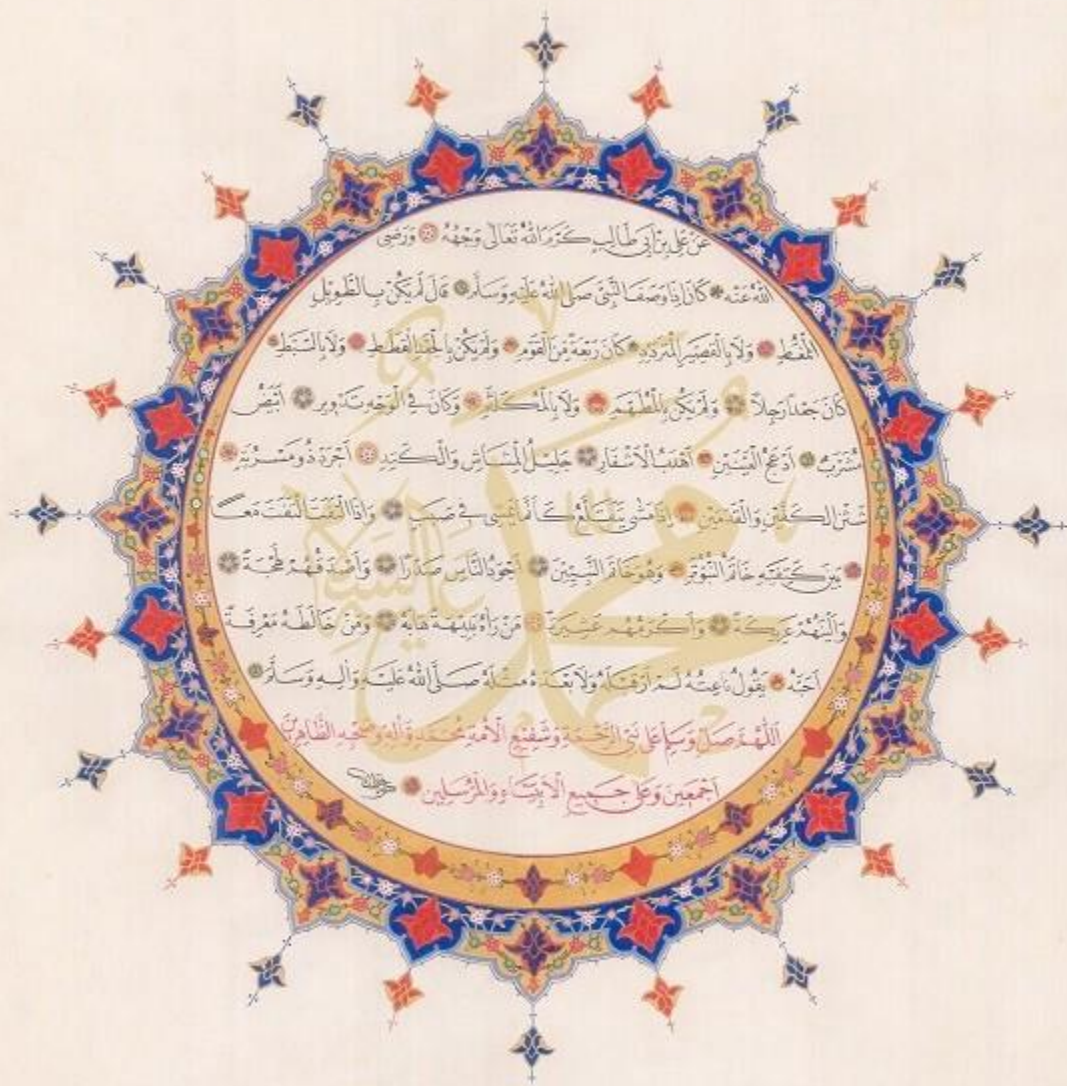 عَنْ عَلِيِّ بْنِ أَبِي طَالِبٍ كَرَّمَ اللهُ تَعَالَى وَجْهَهُ وَرَضِيَ
اللهُ عَنْهُ كَانَ إِذَا وَصَفَ النَّبِيَّ صَلَّى اللهُ عَلَيْهِ وَسَلَّمَ قَالَ لَمْ يَكُنْ بِالطَّوِيلِ
الْمُمَغَّطِ وَلَا بِالْقَصِيرِ الْمُتَرَدِّدِ كَانَ رَبْعَةً مِنَ الْقَوْمِ وَلَمْ يَكُنْ بِالْجَعْدِ الْقَطَطِ وَلَا بِالسَّبَطِ
كَانَ جَعْدًا رَجِلًا وَلَمْ يَكُنْ بِالْمُطَهَّمِ وَلَا بِالْمُكَلْثَمِ وَكَانَ فِي الْوَجْهِ تَدْوِيرٌ أَبْيَضُ
مُشْرَبٌ أَدْعَجُ الْعَيْنَيْنِ أَهْدَبُ الْأَشْفَارِ جَلِيلُ الْمُشَاشِ وَالْكَتِدِ أَجْرَدُ ذُو مَسْرُبَةٍ
شَثْنُ الْكَفَّيْنِ وَالْقَدَمَيْنِ إِذَا مَشَى يَتَقَلَّعُ كَأَنَّمَا يَمْشِي فِي صَبَبٍ وَإِذَا الْتَفَتَ الْتَفَتَ مَعًا
بَيْنَ كَتِفَيْهِ خَاتَمُ النُّبُوَّةِ وَهُوَ خَاتَمُ النَّبِيِّينَ أَجْوَدُ النَّاسِ صَدْرًا وَأَصْدَقُهُمْ لَهْجَةً
وَأَلْيَنُهُمْ عَرِيكَةً وَأَكْرَمُهُمْ عَشِيرَةً مَنْ رَآهُ بَدِيهَةً هَابَهُ وَمَنْ خَالَطَهُ مَعْرِفَةً
أَحَبَّهُ يَقُولُ نَاعِتُهُ لَمْ أَرَ قَبْلَهُ وَلَا بَعْدَهُ مِثْلَهُ صَلَّى اللهُ عَلَيْهِ وَآلِهِ وَسَلَّمَ
اَللّٰهُمَّ صَلِّ وَسَلِّمْ عَلَى نَبِيِّ الرَّحْمَةِ وَشَفِيعِ الْأُمَّةِ مُحَمَّدٍ وَآلِهِ وَصَحْبِهِ الطَّاهِرِينَ
أَجْمَعِينَ وَعَلَى جَمِيعِ الْأَنْبِيَاءِ وَالْمُرْسَلِينَ
محمد
عليه السلام